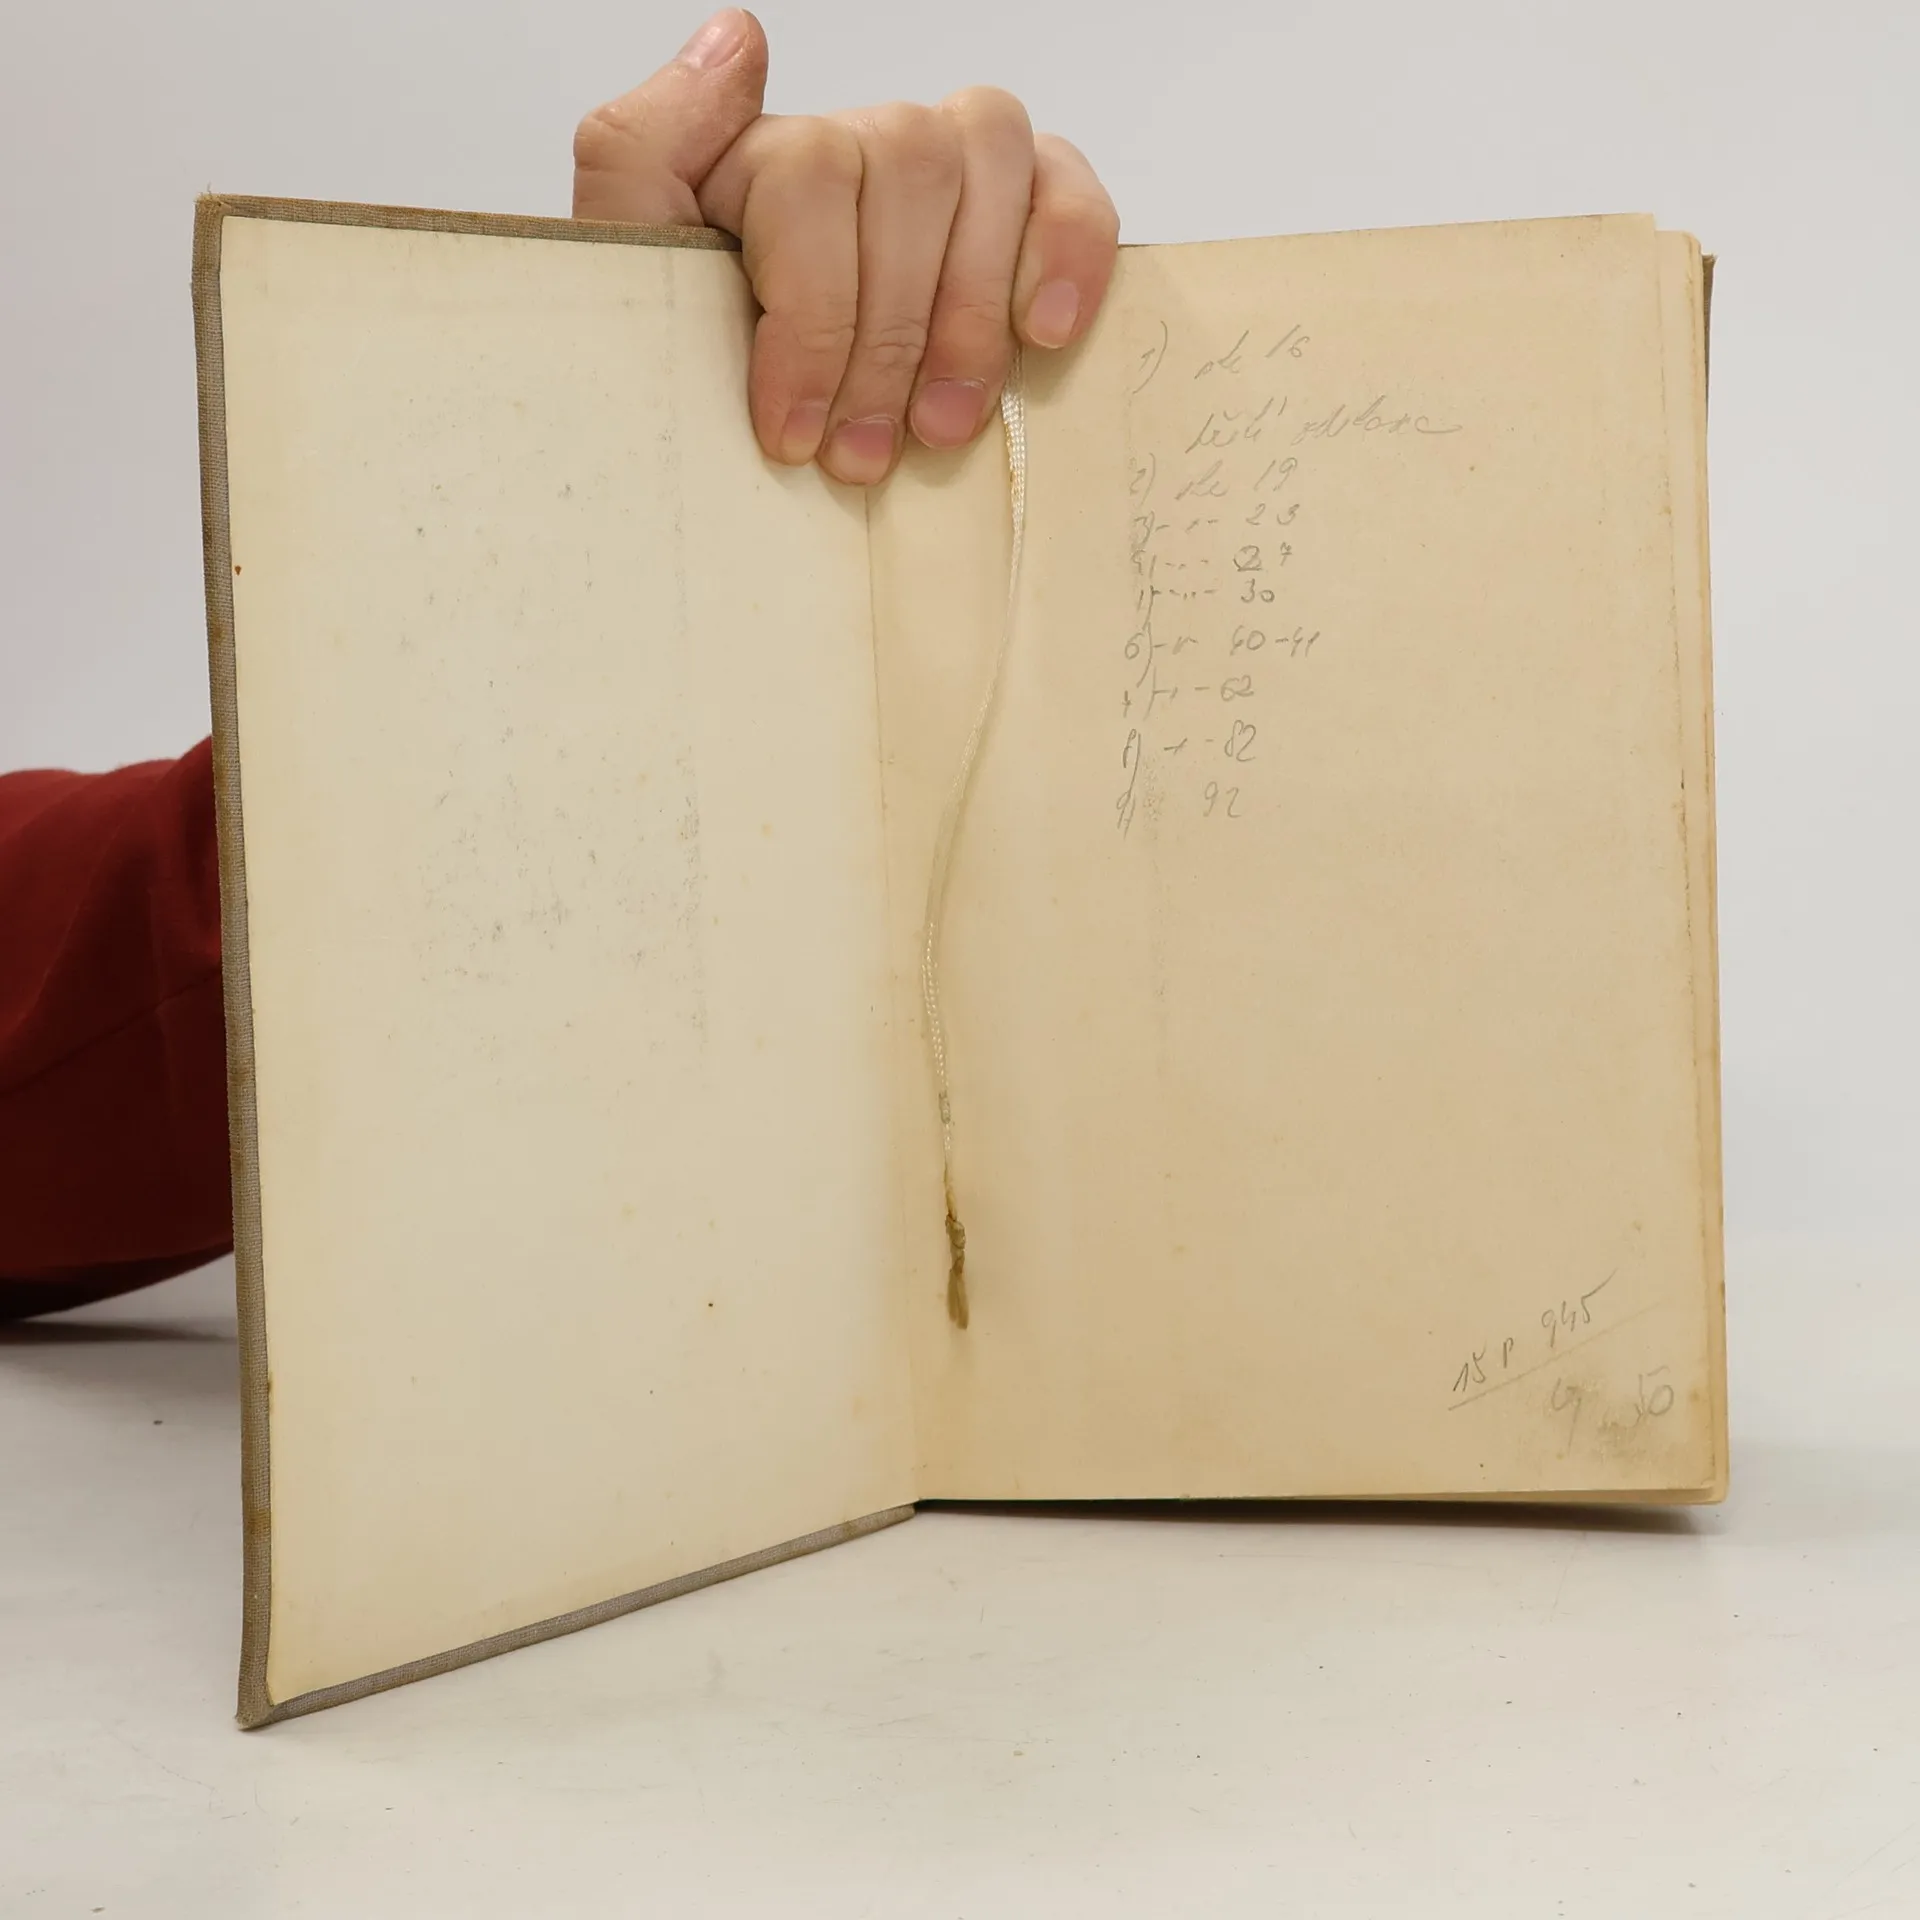 1) str 16
2) str 19
3) -"- 23
4) -"- 27
5) -"- 30
6) -"- 40-41
7) -"- 62
8) -"- 82
9) 92
15 P 945
50